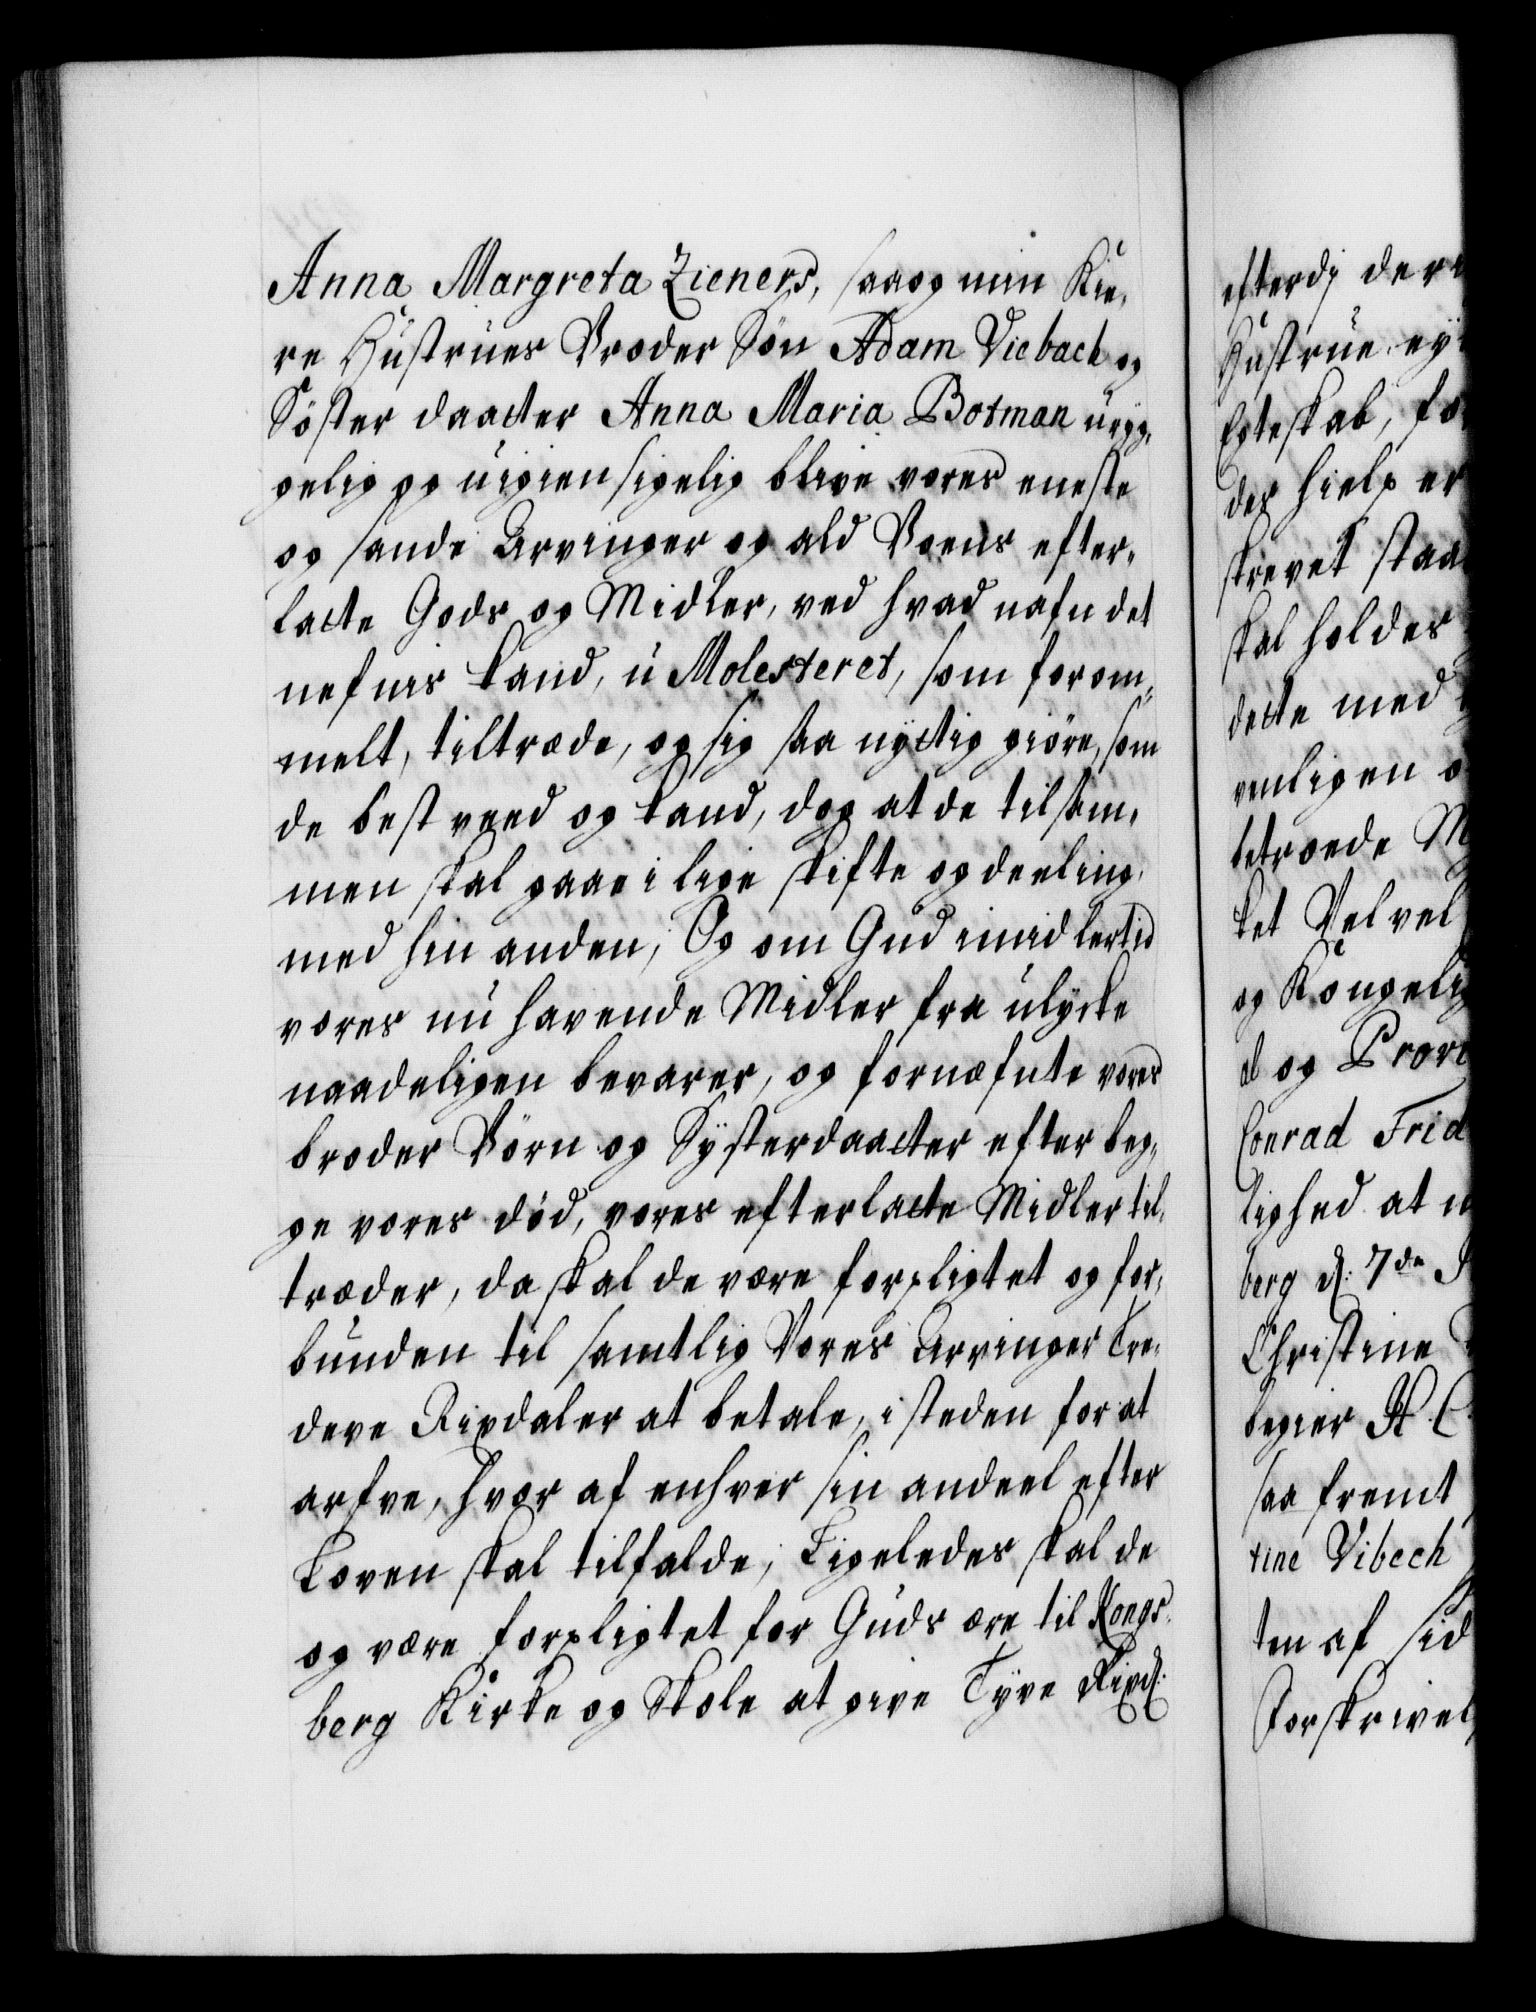 Anna Margreta Zieners, saa og min Kie,
re Hustrues Broder Søn Adam Viebach og
Søster daatter Anna Maria Botman uryg,
gelig og uigiensigelig blive vores eneste
og sande Arvinger og ald Voris efter,
latte Gods og Midler, ved hvad nafn det
nefnis kand, u Molesteret, som forom,,
melt, tiltræde, og sig saa nyttig giøre, som
de best veed og kand, dog at de tilsam,
men skal gaae i lige skifte og deeling,
med hin anden; Og om Gud imidlertid
vores nu havende Midler fra ulycke
naadeligen bevarer, og fornæfnte vores
broder Børn og Systerdaatter efter beg,
ge vores død, vores efterlatte Midler til,
træder, da skal de være forpligtet og for,
bunden til samtlig Vores Arvinger Tre,
deve Rixdaler at betale, i steden for at
arfve, hvor af enhver sin andeel efter
Loven skal tilfalde; Ligeledes skal de
og være forpligtet for Guds ære til Kongs,
berg Kirke og Skole at give Tyve Rixd:
efterdj der
Hustrue
Egteskab,
des hielp er
skrevet staa
skal holdes
dette med
venligen
betroede
ket Velvel
og Kongelig
d og
Conrad Frid
lighed at
berg d: 7de
Christine
begier H C
saa fremt
tine Vibech
ten af sid
Forskrivel